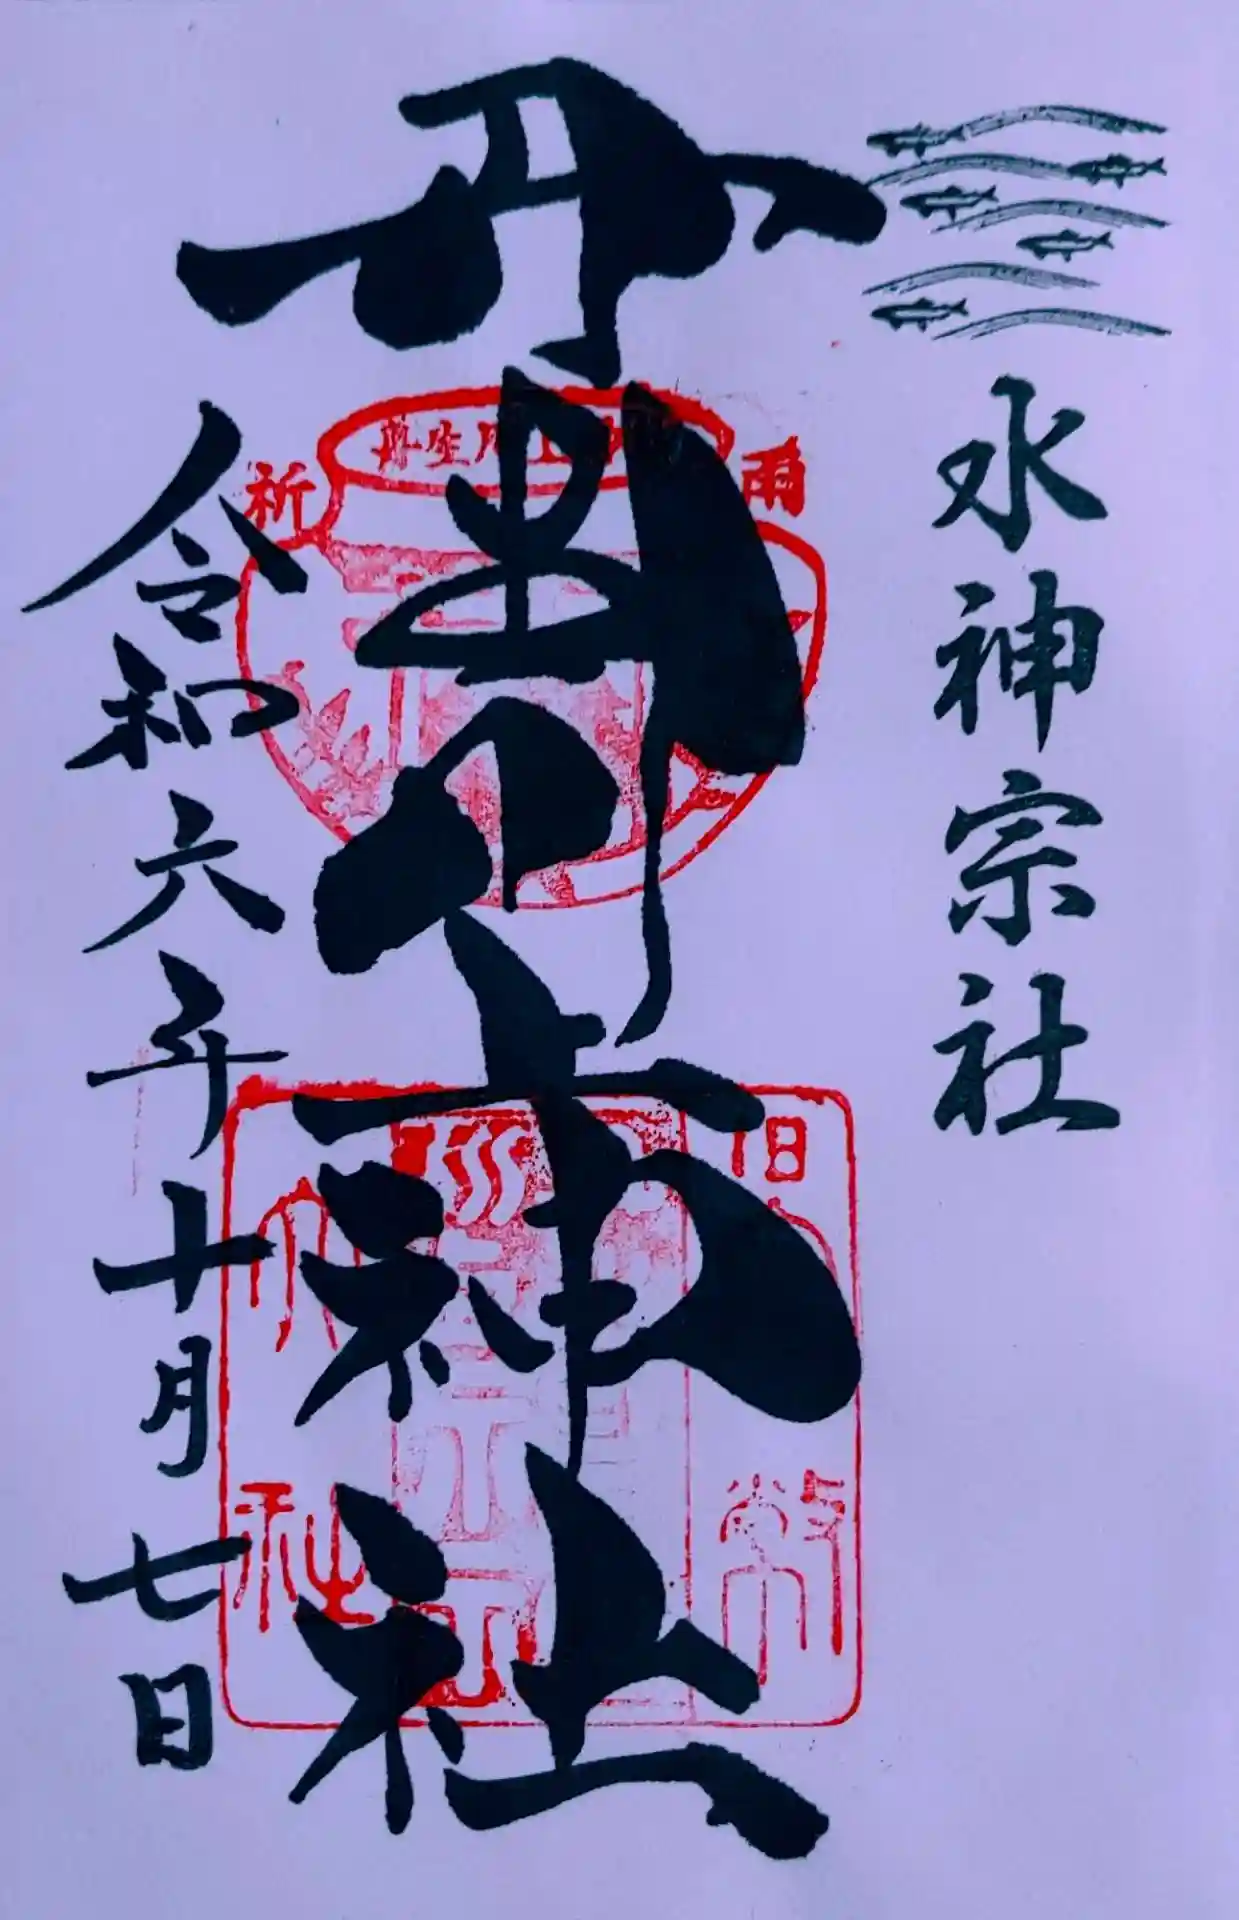 水神宗社
丹生川上神社
令和六年十月七日
丹生川上
祈雨
旧
幣
大社